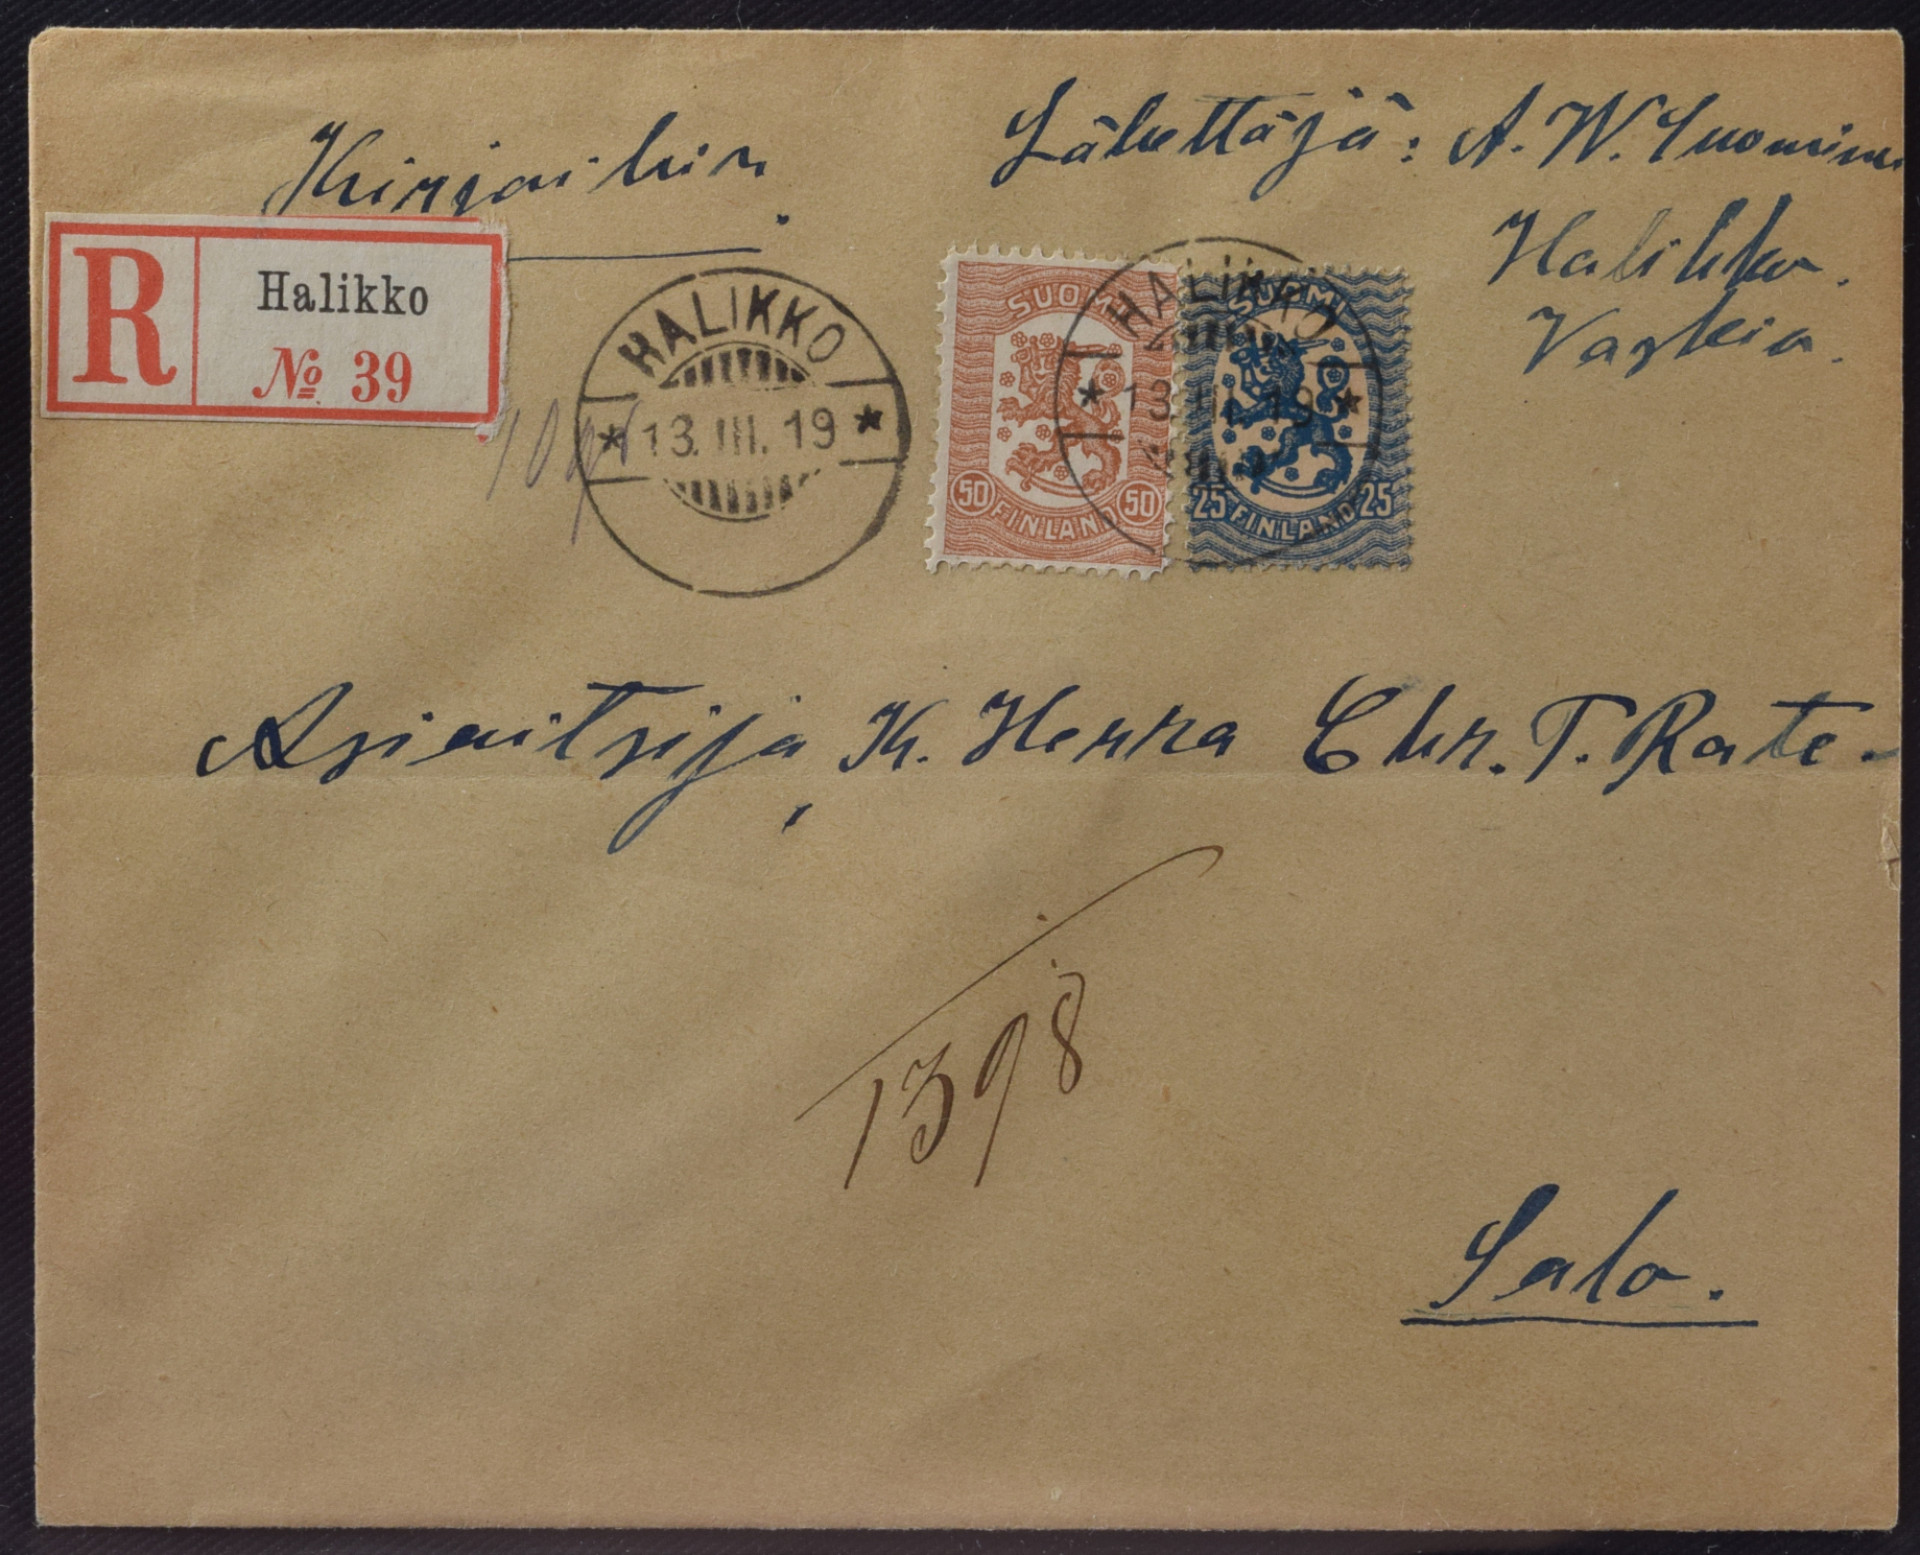 Kirjattu.
Lähettäjä: A. W. Suominen
Halikko.
Vaskio.
R
Halikko
№ 39
HALIKKO
* 13. III. 19 *
SUOMI
50 FINLAND 50
HALIKKO
* 13. III. 19 *
SUOMI
25 FINLAND 25
Asioitsija, K. Herra Chr. T. Rate.
1398
Salo.